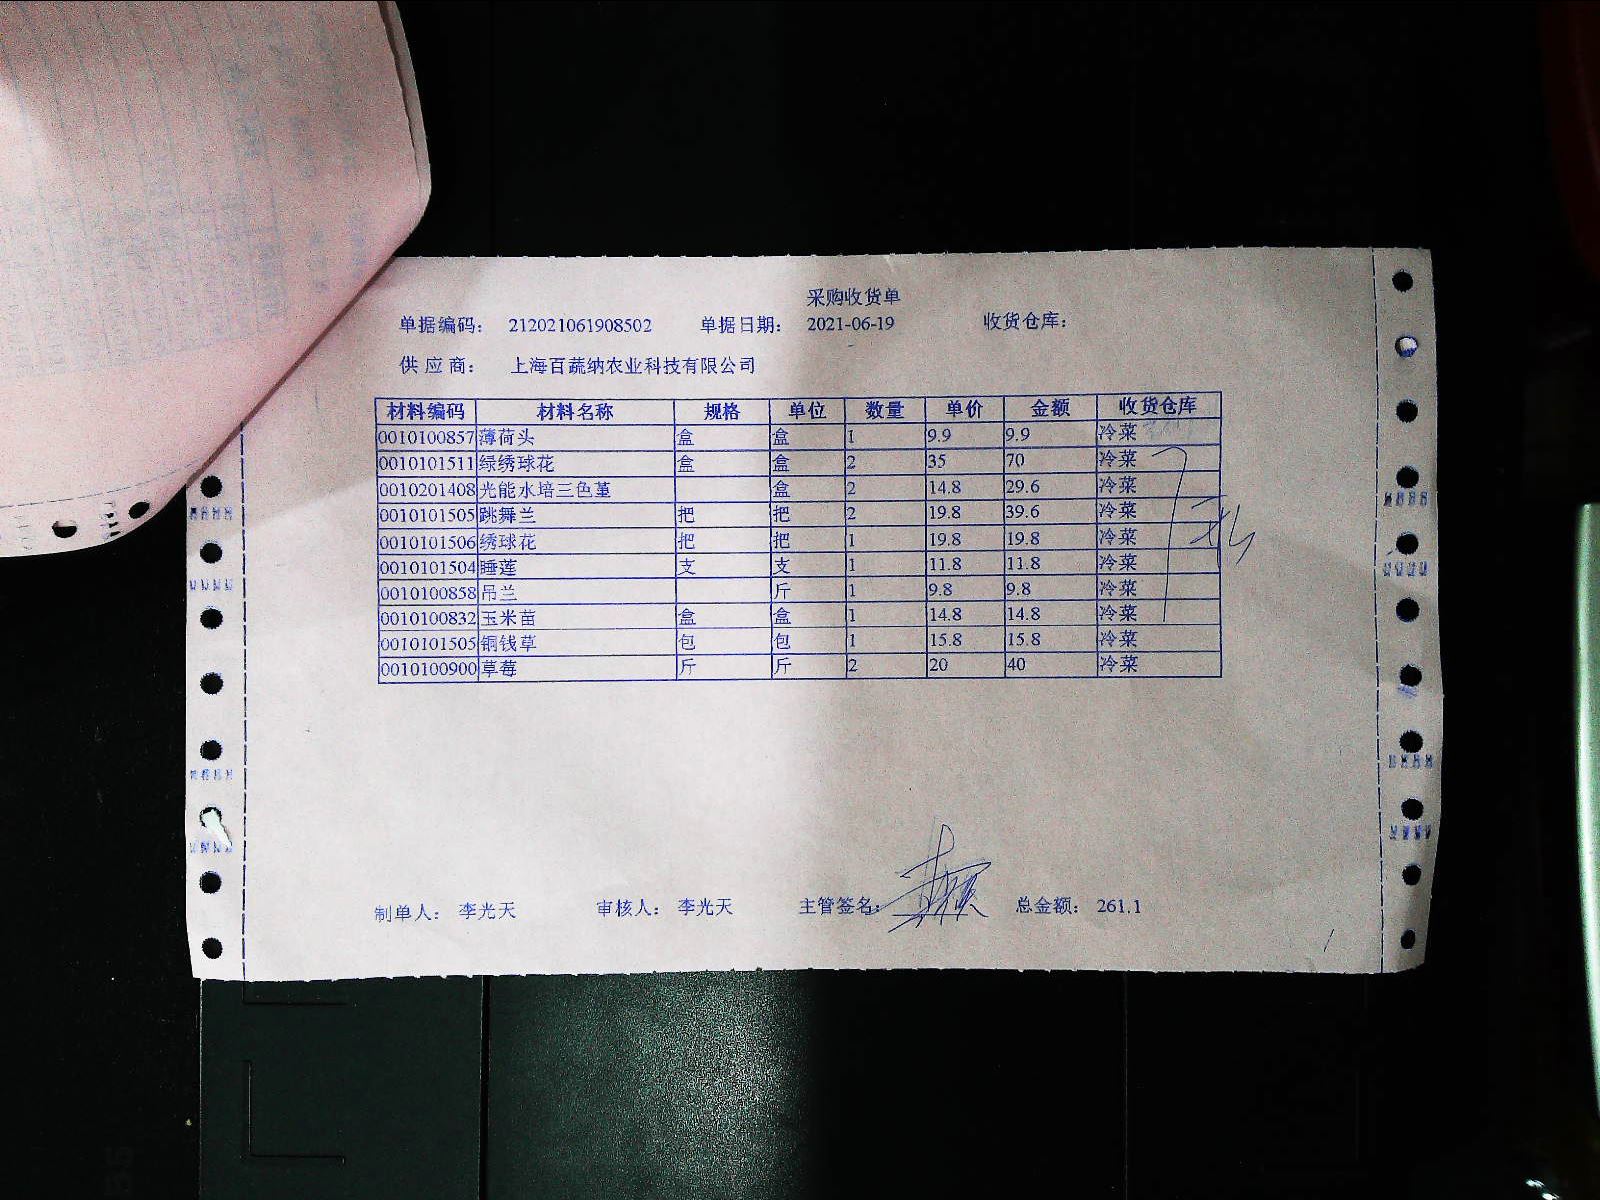 采购收货单
单据编码： 212021061908502 单据日期： 2021-06-19 收货仓库：
供 应 商： 上海百蔬纳农业科技有限公司
材料编码 材料名称 规格 单位 数量 单价 金额 收货仓库
0010100857 薄荷头 盒 盒 1 9.9 9.9 冷菜
0010101511 绿绣球花 盒 盒 2 35 70 冷菜
0010201408 光能水培三色堇 盒 2 14.8 29.6 冷菜
0010101505 跳舞兰 把 把 2 19.8 39.6 冷菜
0010101506 绣球花 把 把 1 19.8 19.8 冷菜
0010101504 睡莲 支 支 1 11.8 11.8 冷菜
0010100858 吊兰 斤 1 9.8 9.8 冷菜
0010100832 玉米苗 盒 盒 1 14.8 14.8 冷菜
0010101505 铜钱草 包 包 1 15.8 15.8 冷菜
0010100900 草莓 斤 斤 2 20 40 冷菜
制单人： 李光天 审核人： 李光天 主管签名： 总金额： 261.1